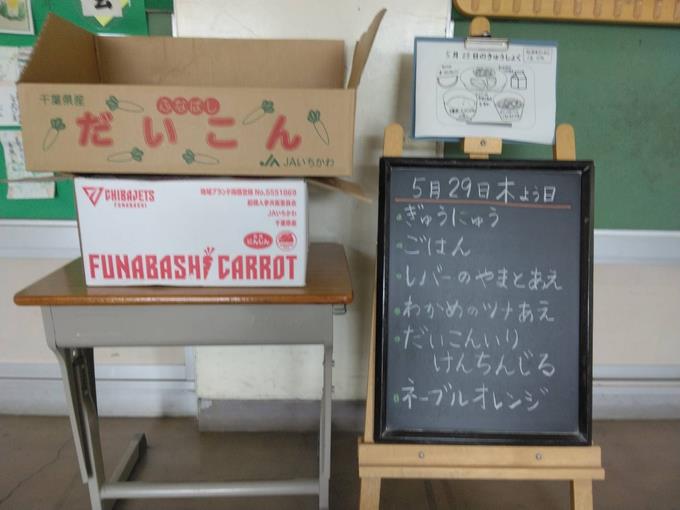 千葉県産
ふなばし
だいこん
JAいちかわ
CHIBAJETS
FUNABASHI
地域ブランド商標登録 No.5551868
船橋人参共販委員会
JAいちかわ
千葉県産
にんじん
FUNABASHI CARROT
5月29日のきゅうしょく
5月29日木よう日
ぎゅうにゅう
ごはん
レバーのやまとあえ
わかめのツナあえ
だいこんいり
けんちんじる
ネーブルオレンジ